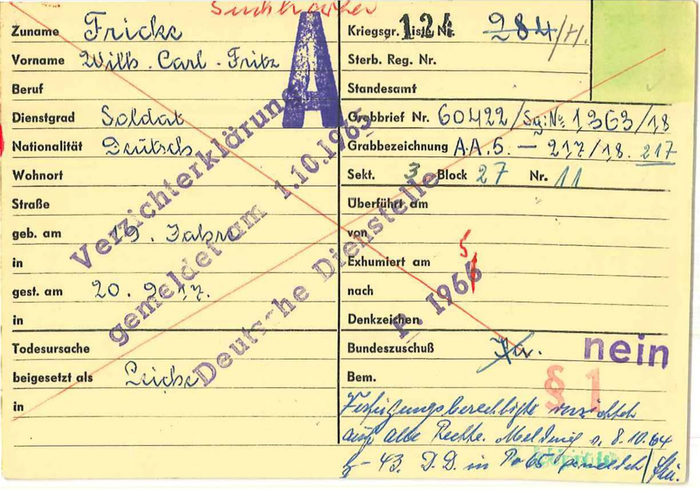 Zuname Fricke
Vorname Wilh. Carl-Fritz
Beruf
Dienstgrad Soldat
Nationalität Deutsch
Wohnort
Straße
geb. am 19. Jahre
in
gest. am 20.9.17.
in
Todesursache
beigesetzt als Leiche
in
A
Verzichterklärung
gemeldet am 1.10.1965
Deutsche Dienststelle
Kriegsgr. Liste Nr. 124 284/H.
Sterb. Reg. Nr.
Standesamt
Grabbrief Nr. 60422/Sg:No 1363/18
Grabbezeichnung A.A.5. - 217/18. 217
Sekt. 3 Block 27 Nr. 11
Überführt am
von
Exhumiert am
nach
P. 1966 5
Denkzeichen
Bundeszuschuß Ja. nein
Bem. § 1
Verfügungsberechtigte verzichtet
auf alte Rechte. Meldung v. 8.10.64
D.D. in Po 65 gemeldet